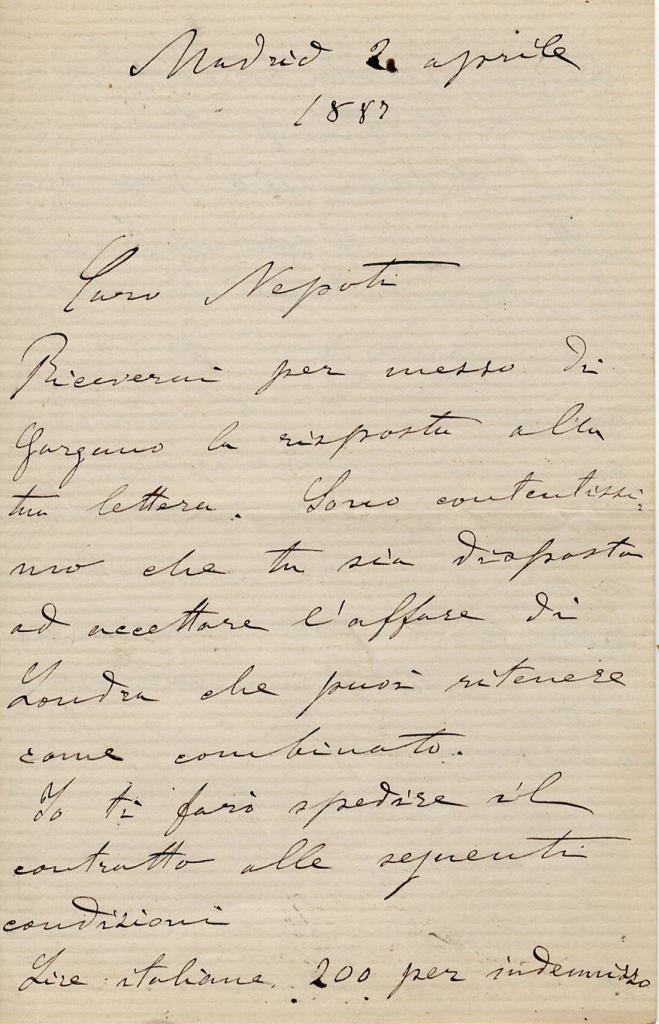 Madrid 2 aprile
1887
Caro Nepoti
Riceverai per messo di
Gargano la risposta alla
tua lettera. Sono contentissi-
mo che tu sia disposta
ad accettare l'affare di
Londra che puoi ritenere
come combinato.
Io ti farò spedire il
contratto alle seguenti
condizioni
Lire italiane 200 per indennizzo